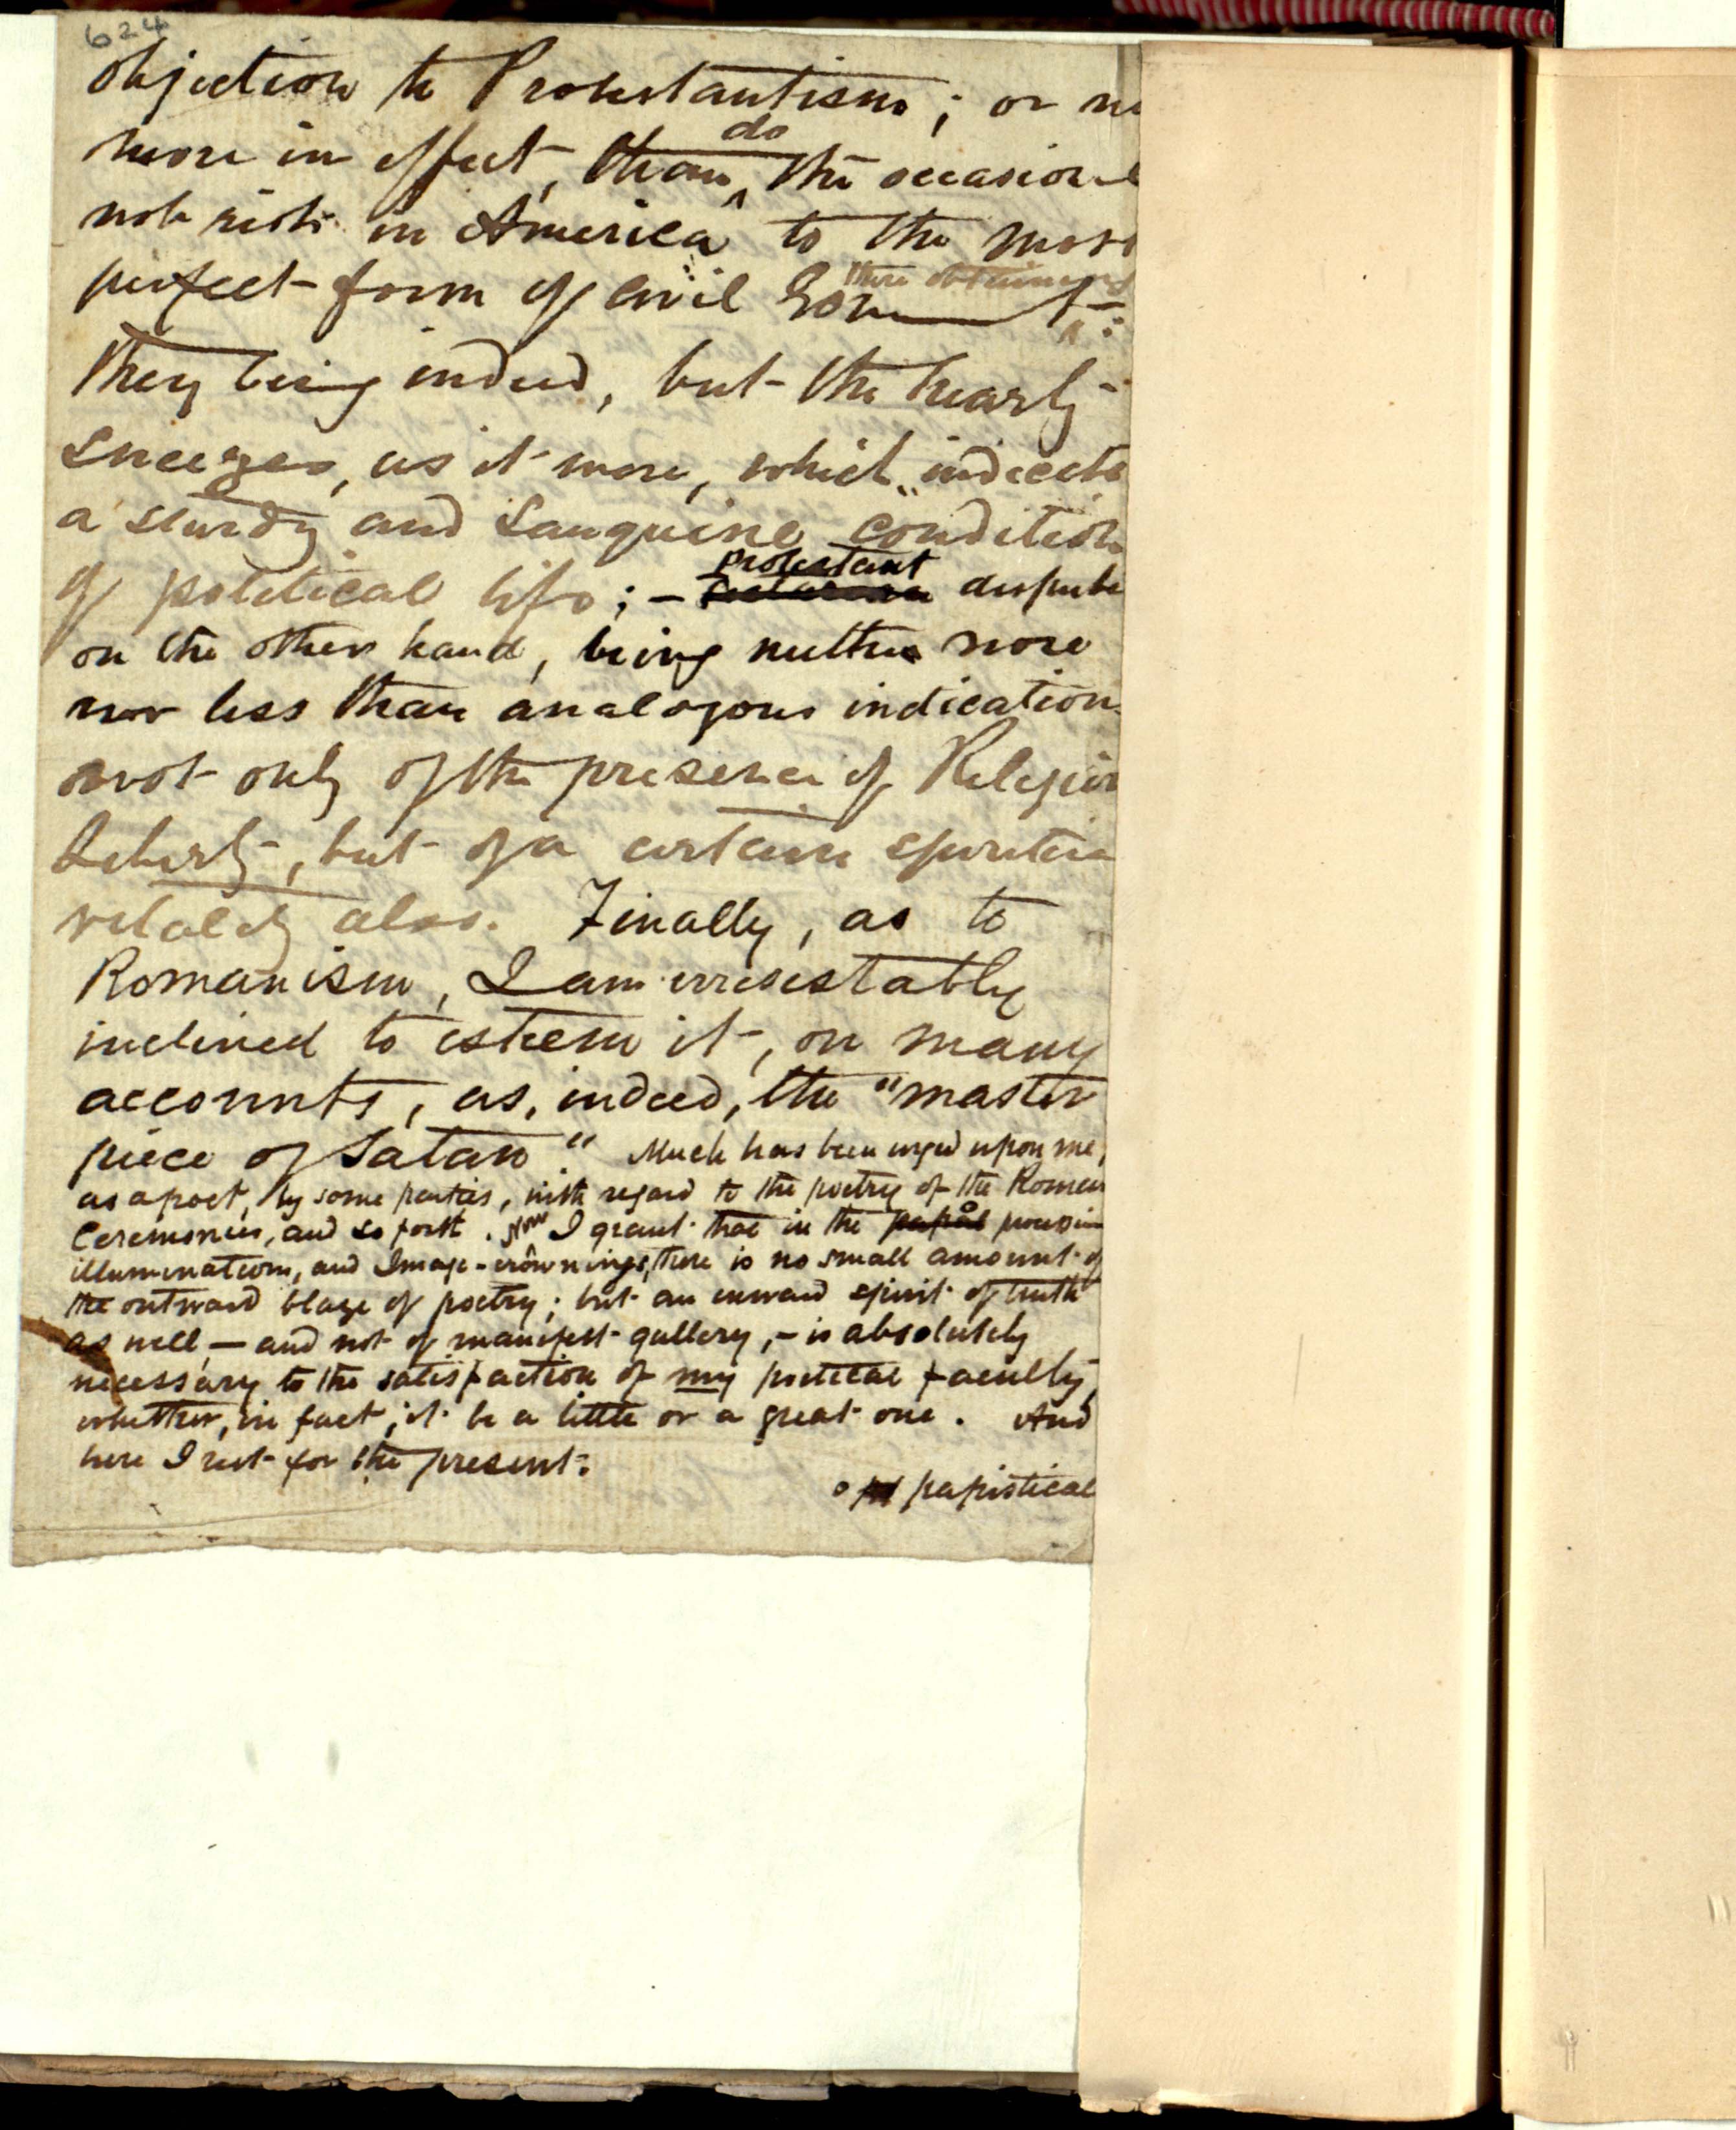 624
objection to Protestantism; or no
more in effect, than do the occasional
mob riots in America to the most
perfect form of Civil Gov——t there obtaining:
They being indeed, but the hearty
sneezes, as it were, which indicate
a sturdy and sanguine condition
of political life; — protestant dispute
on the other hand, being neither more
nor less than analogous indications
not only of the presence of Religious
Liberty, but of a certain spiritual
vitality also. Finally, as to
Romanism, I am irresistably
inclined to esteem it, on many
accounts, as, indeed, the "master
piece of Satan". Much has been urged upon me,
as a poet, by some parties, with regard to the poetry of the Roman
Ceremonies, and so forth. Now I grant that in the papal processions
illuminations, and Image-crownings, there is no small amount of
the outward blaze of poetry; but an inward spirit of truth
as well, — and not of manifest gullery, — is absolutely
necessary to the satisfaction of my poetical faculty,
whether, in fact, it be a little or a great one. And
here I rest for the present.
papistical